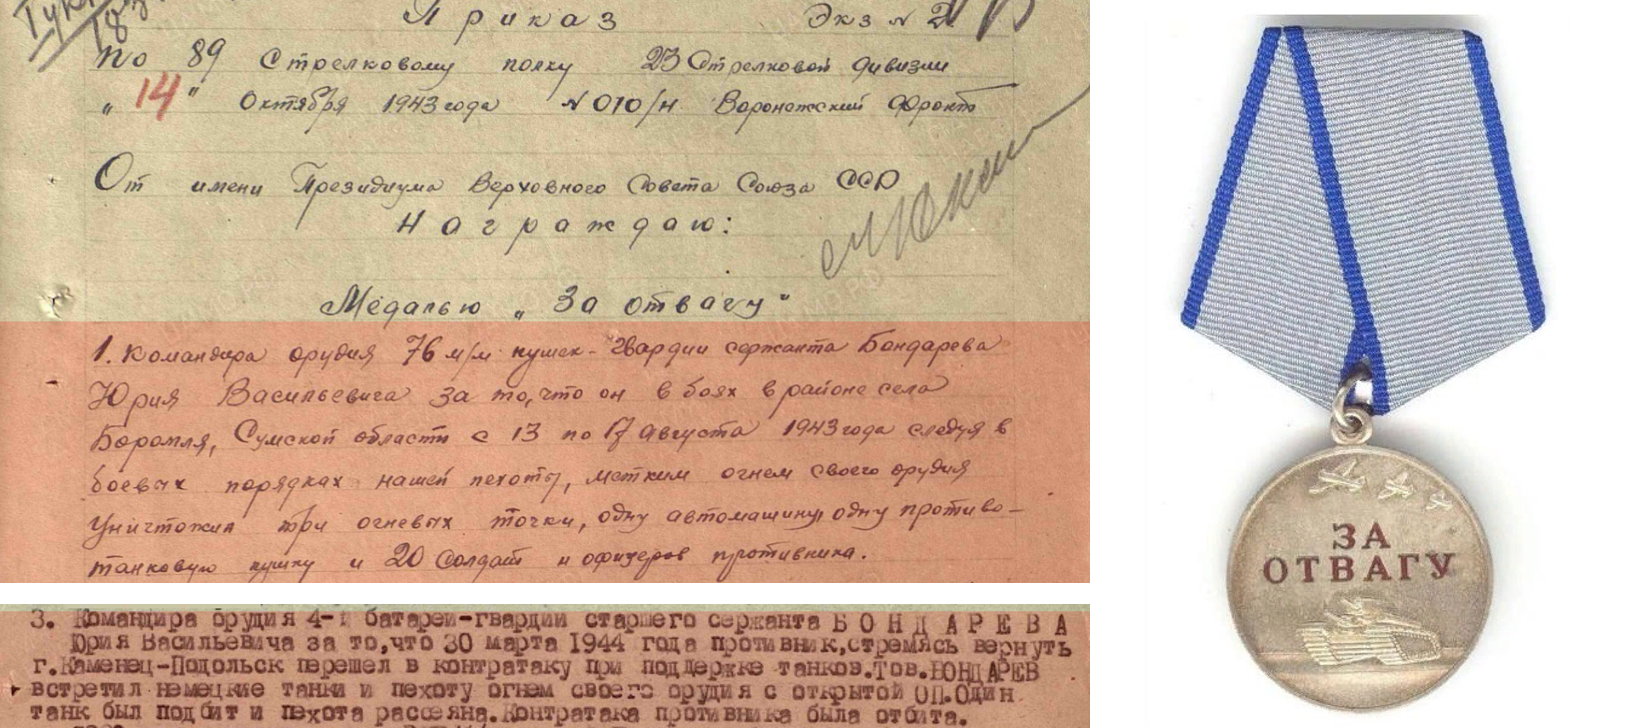 Приказ Экз №2
По 89 Стрелковому полку 23 Стрелковой дивизии
„14" Октября 1943 года №010/н Воронежский Фронт
От имени Президиума Верховного Совета Союза ССР
Награждаю:
Медалью „За отвагу"
1. Командира орудия 76 м/м пушек - Гвардии сержанта Бондарева
Юрия Васильевича за то, что он в боях в районе села
Боромля, Сумской области с 13 по 17 августа 1943 года следуя в
боевых порядках нашей пехоты, метким огнем своего орудия
уничтожил три огневых точки, одну автомашину, одну противо-
танковую пушку и 20 солдат и офицеров противника.
3. Командира орудия 4-й батареи-гвардии старшего сержанта БОНДАРЕВА
Юрия Васильевича за то,что 30 марта 1944 года противник,стремясь вернуть
г.Каменец-Подольск перешел в контратаку при поддержке танков.Тов.БОНДАРЕВ
встретил немецкие танки и пехоту огнем своего орудия с открытой ОП.Один
танк был подбит и пехота рассеяна.Контратака противника была отбита.
ЗА
ОТВАГУ